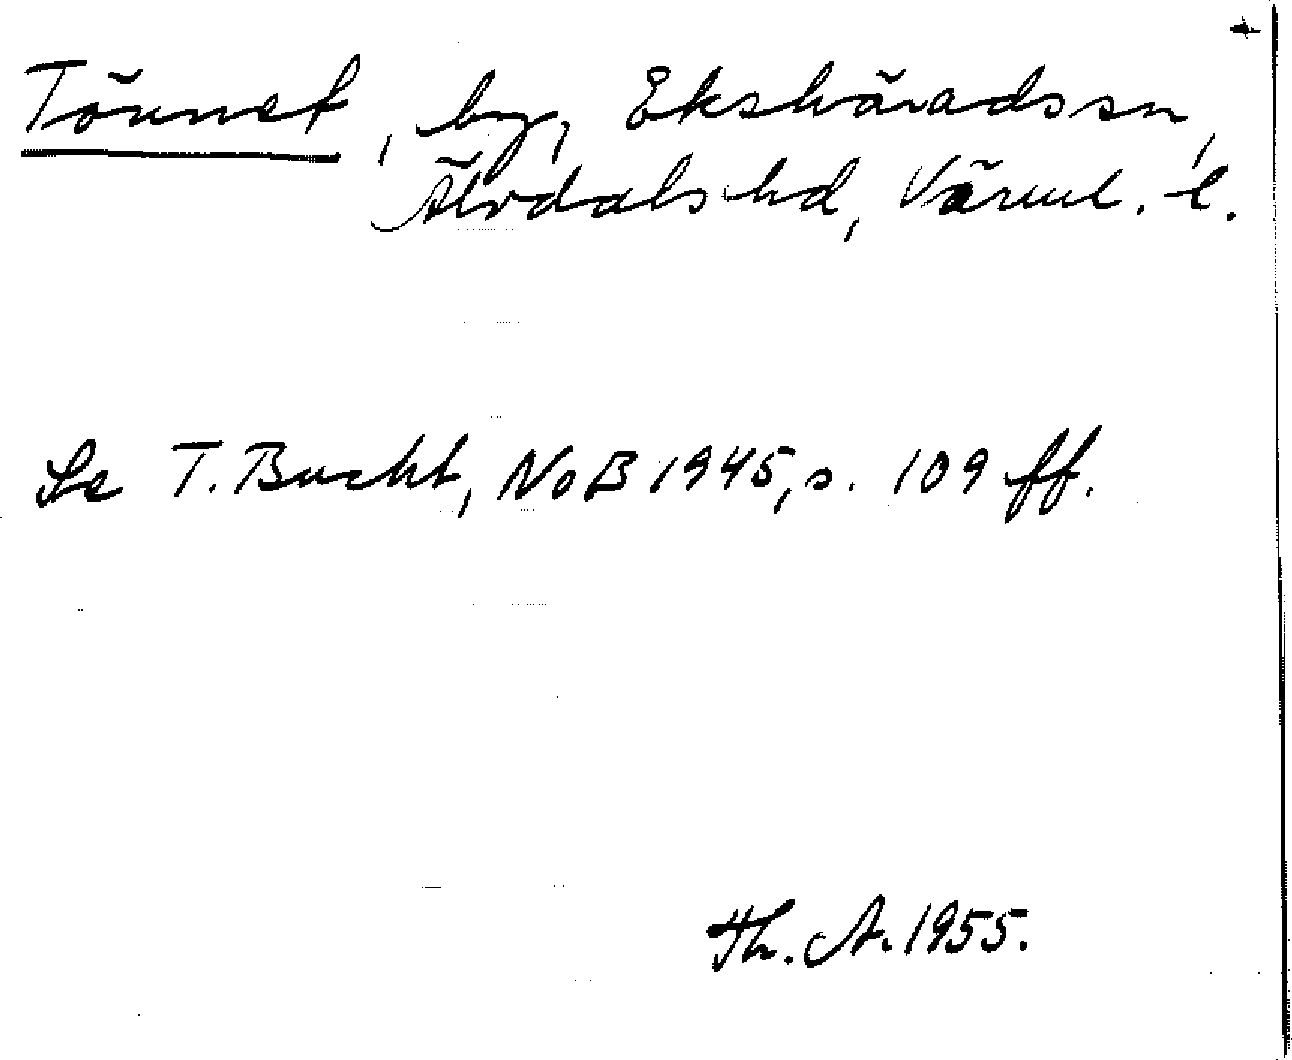 Tönnet, by, Ekshäradssn,
Älvdalshd, Värml. l.
Se T. Bucht, NoB 1945, s. 109 ff.
Th. A. 1955.